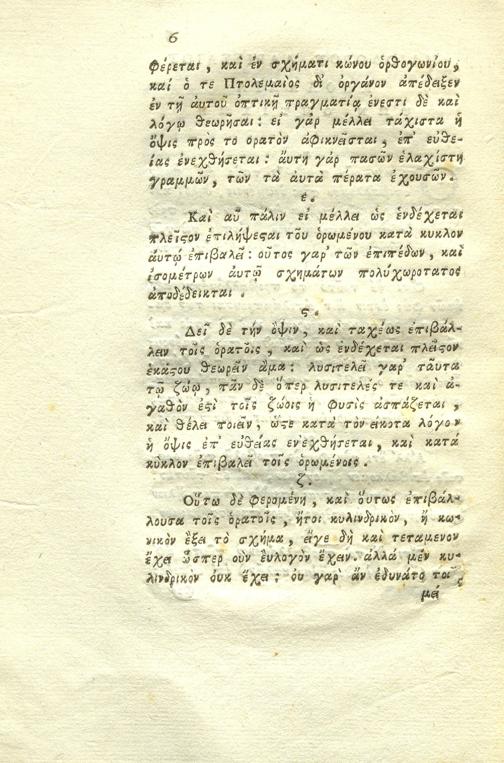 6
φέρεται, καὶ ἐν σχήματι κώνου ὀρθογωνίου,
καὶ ὅ τε Πτολεμαῖος δἰ ὀργάνον ἀπέδειξεν
ἐν τῇ αυτοῦ ὀπτικῇ πραγματίᾳ ἔνεστι δὲ καὶ
λόγῳ θεωρῆσαι: εἰ γὰρ μέλλει τάχιστα ἡ
ὄψις πρὸς το ορατὸν ἀφικνεῖσται, ἐπ' ευθε-
ίας ἐνεχθήσεται: ἅυτη γάρ πασῶν ἐλαχίστη
γραμμῶν, τῶν τὰ ἀυτὰ πέρατα ἐχουσῶν.
έ.
Καὶ αὖ πάλιν εἰ μέλλει ὡς ἐνδέχεται
πλεῖστον ἐπιλήψεσαι τοῦ ὁρωμένου κατὰ κυκλον
ἀυτῷ ἐπιβαλεῖ: οὗτος γαρ' τῶν ἐπιπέδων, καὶ
ἰσομέτρων ἀυτῷ σχημάτων πολύχωροτατος
ἀποδέδεικται.
ς.
Δεῖ δὲ τὴν ὄψιν, καὶ ταχέως ἐπιβάλ-
λειν τοῖς ὁρατοῖς, καὶ ὡς ἐνδέχεται πλεῖστον
ἑκάστου θεωρεῖν ἅμα: λυσιτελεῖ γαρ' τᾶυτα
τῷ ζώῳ, πᾶν δὲ ὅπερ λυσιτελές τε καὶ ἀ-
γαθὸν ἐστὶ τοῖς ζώοις ἡ Φυσὶς ἀσπάζεται,
καὶ θέλει ποιεῖν, ὥστε κατὰ τὸν εικοτα λόγον
ἡ ὄψις ἐπ' ευθείας ενεχθήσεται, καὶ κατὰ
κῦκλον ἐπιβαλεῖ τοῖς ὁρωμένοις.
ζ.
Οὕτω δὲ φερομένη, καὶ ὅυτως ἐπιβάλ-
λουσα τοῖς ὁρατοῖς, ἤτοι κυλινδρικὸν, ἢ κω-
νικὸν ἕξει τὸ σχῆμα, ἔιγε δὴ καὶ τεταμενον
ἔχει ὥσπερ οὖν ἐυλογὸν ἔχειν. ἀλλὰ μὲν κυ-
λινδρικον ὀυκ ἔχει: ὀυ γαρ' ἂν ἐδυνάτο τοῖς
μὲ